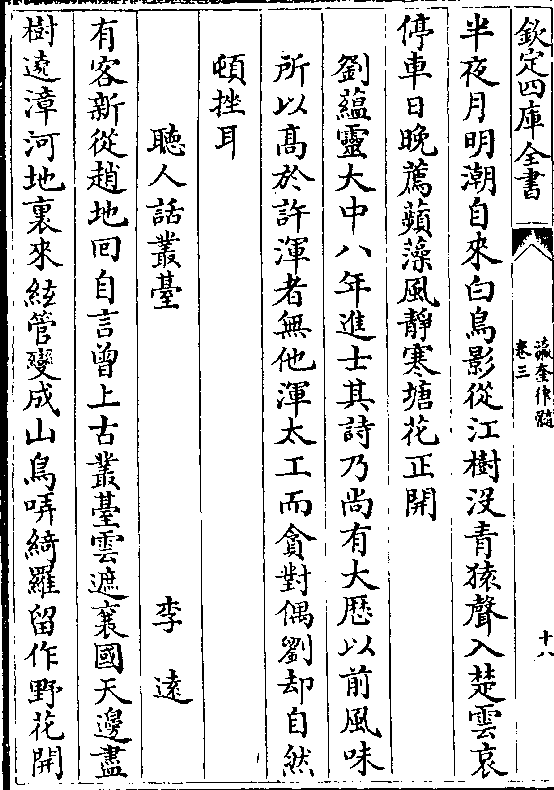 欽定四庫全書
瀛奎律髓
卷三
十八
半夜月明潮自來白鳥影從江樹没青猿聲入楚雲哀
停車日晩薦蘋藻風靜寒塘花正開
劉藴靈大中八年進士其詩乃尚有大厯以前風味
所以髙於許渾者無他渾太工而貪對偶劉却自然
頓挫耳
聽人話叢臺
李逺
有客新從趙地回自言曾上古叢臺雲遮襄國天邊盡
樹逺漳河地裏來絃管變成山鳥哢綺羅留作野花開